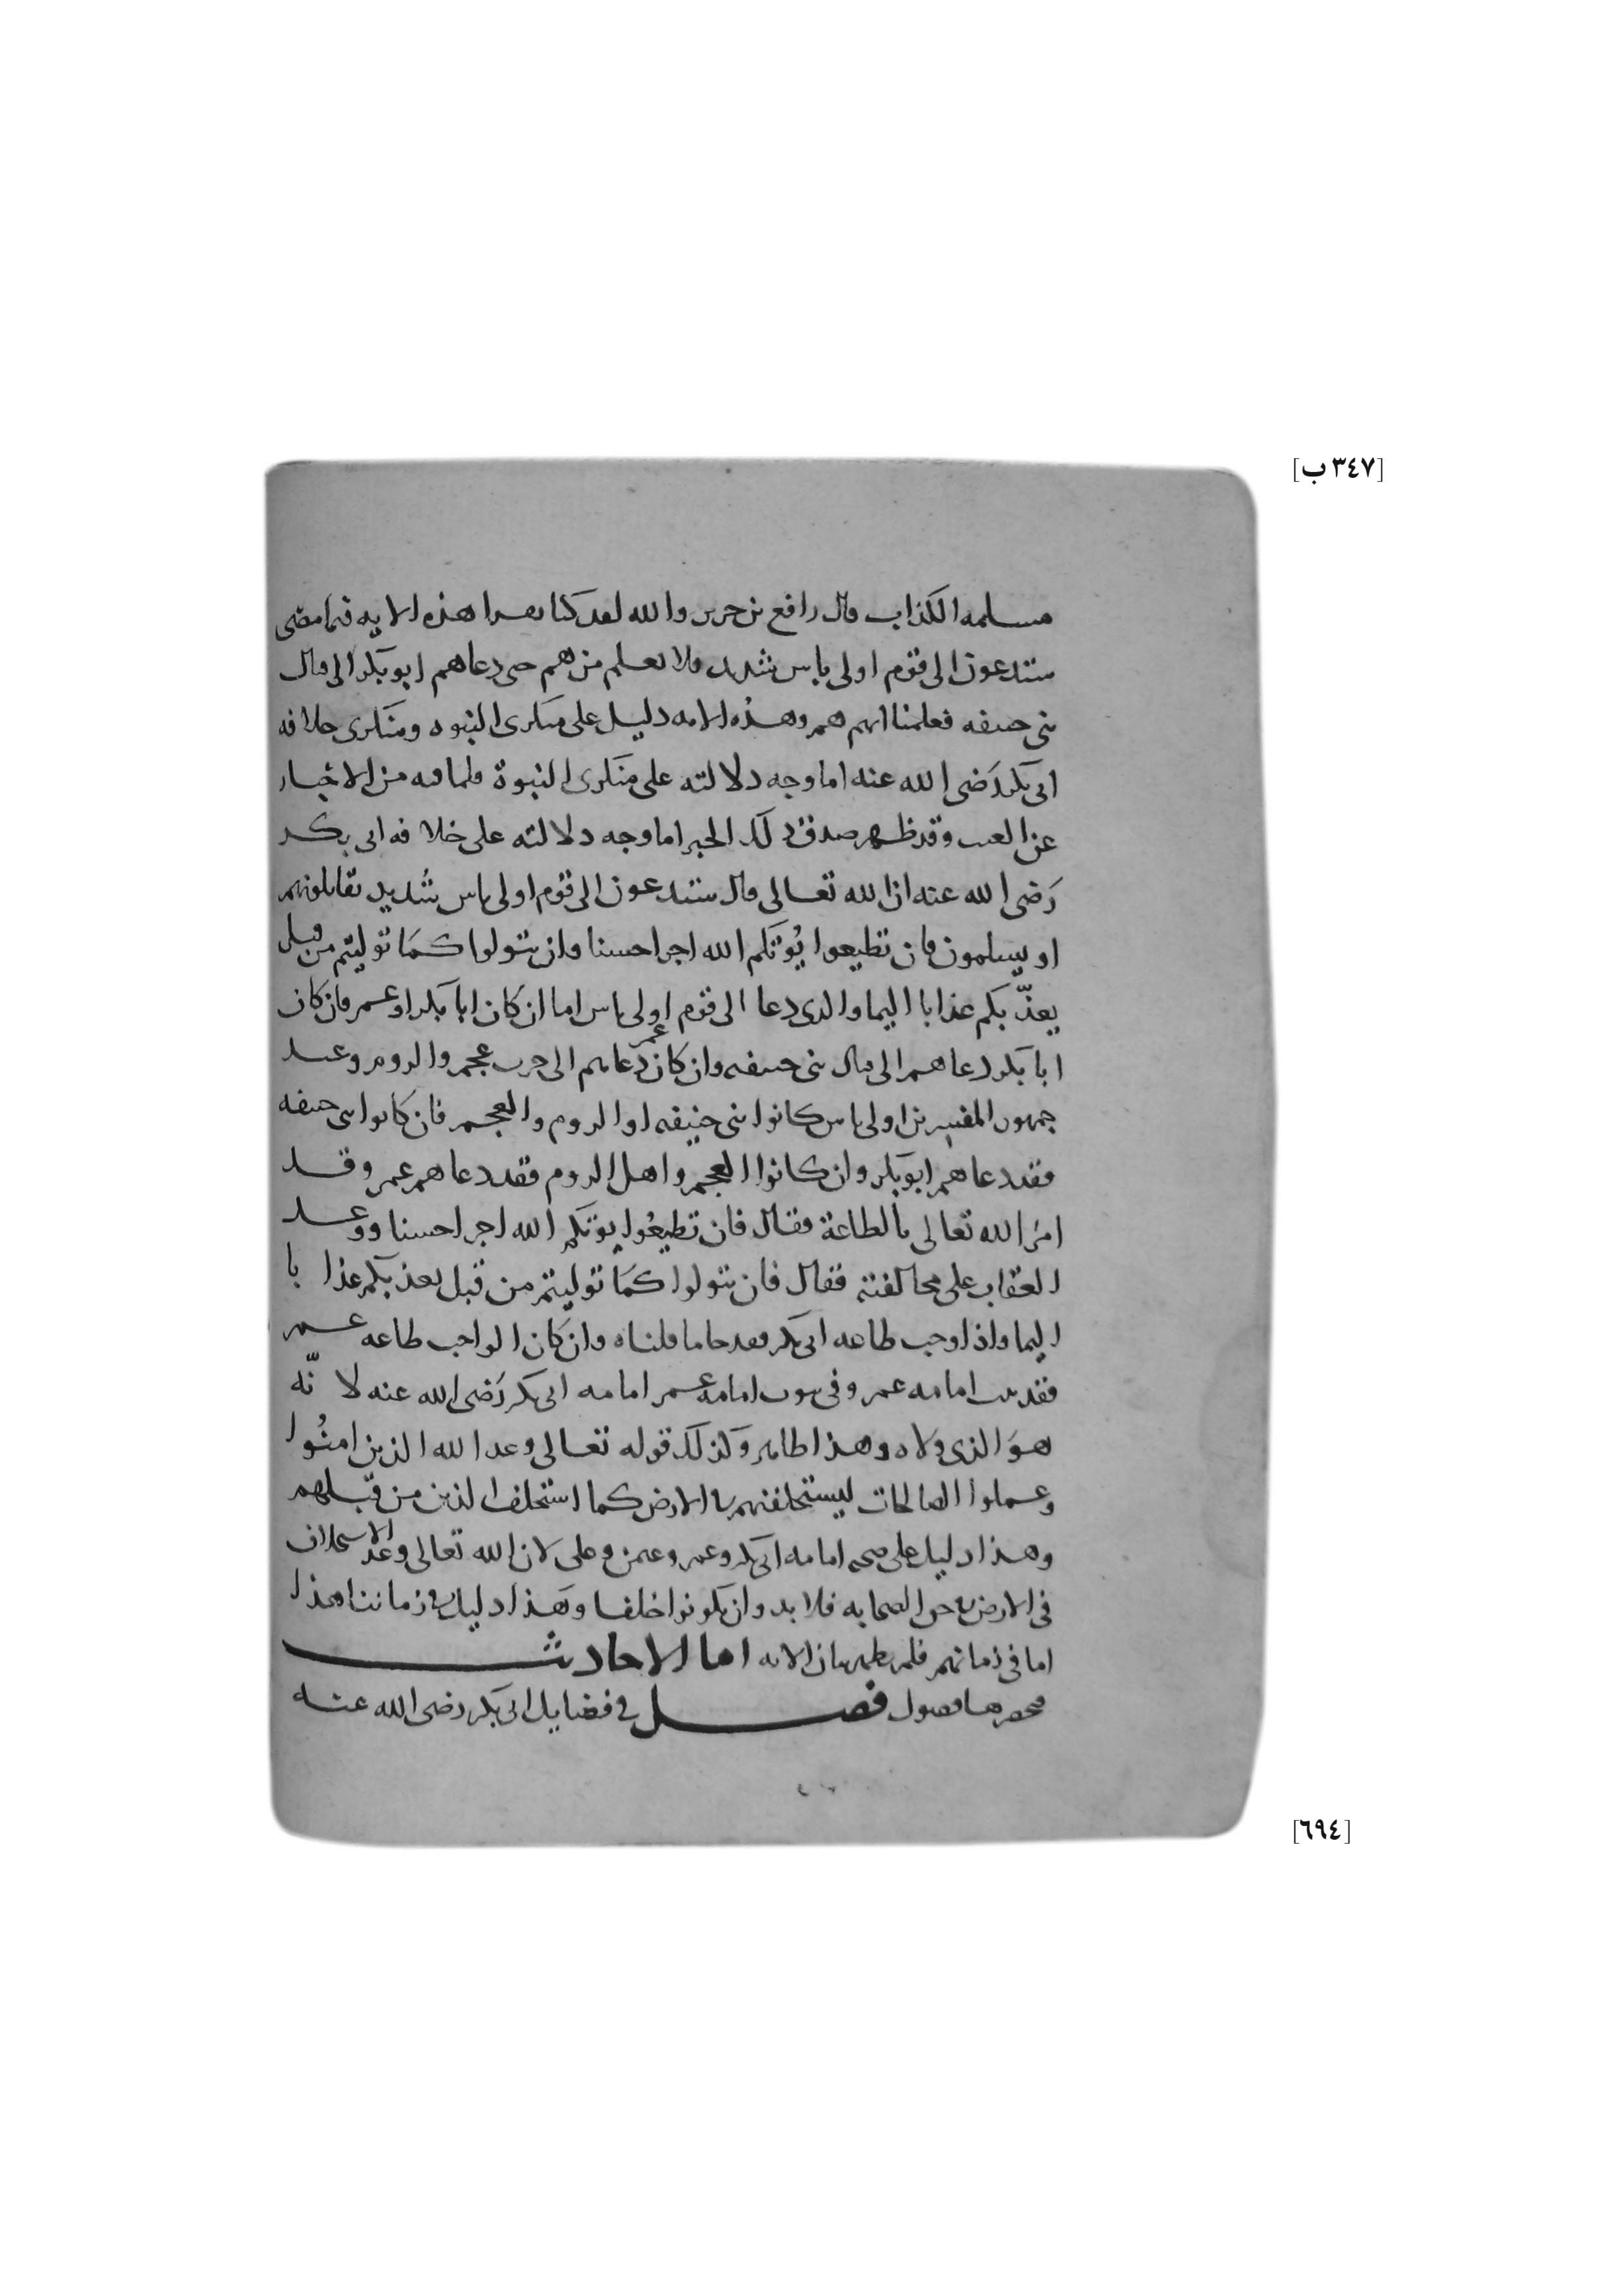 [٣٤٧ ب]
مسلمه الكذاب قال رافع بن خديج والله لقد كنا نقرا هذه الايه فيما مضى
ستدعون الى قوم اولى باس شديد ولا نعلم من هم حتى دعاهم ابو بكر الى قتال
بنى حنيفه فعلمنا انهم هم وهذه الايه دليل على منكرى النبوه ومنكرى خلافه
ابى بكر رَضى الله عنه اما وجه دلالته على منكرى النبوة فلما فيه من الاخبار
عن الغيب وقد ظهر صدق ذلك الخبر اما وجه دلالته على خلافه ابى بكر
رَضى الله عنه ان الله تعالى قال ستدعون الى قوم اولى باس شُديد تقاتلونهم
او يسلمون فان تطيعوا يُؤتكم الله اجرا حسنا وان تتولوا كمَا توليتم من قبل
يعذّبكم عذابا اليما والذى دعا الى قوم اولى باس اما ان كان ابا بكر او عمر فان كان
ابا بكر دعاهم الى قتال بنى حنيفه وان كان عمر دعاهم الى حرب عجم والروم وعند
جمهور المفسرين اولى باس كانوا بنى حنيفه او الروم والعجم فان كانوا بنى حنيفه
فقد دعاهم ابو بكر وان كانوا العجم واهل الروم فقد دعاهم عمر وقد
امرَ الله تعالى بالطاعة فقال فان تطيعُوا يؤتكم الله اجرا حسنا ووعد
العقاب على مخالفته فقال فان تتولوا كمَا توليتم من قبل يعذبكم عذابا
اليما واذا وجب طاعه ابى بكر فقد جاما قلناه وان كان الواجب طاعه عمر
فقد ثبت امامه عمر وفى ثبوت امامه عمر امامه ابى بكر رَضى الله عنه لانّه
هوَ الذى ولاه وهذا ظاهر وكذلك قوله تعالى وعد الله الذين امنُوا
وعملوا الصالحات ليستخلفنهم فى الارض كما استخلف الذين من قبلهم
وهذا دليل على صحه امامه ابى بكر وعمر وعثمن وعلى لان الله تعالى وعد الاستخلاف
فى الارض فى حق الصحابه فلا بد وان يكونوا خلفا وهَذا دليل فى زماننا هذا
اما فى زمانهم فلم يظهر بيان الايه اما الاحاديث
فحصرها فصول فصل فى فضايل ابى بكر رضى الله عنه
[٦٩٤]